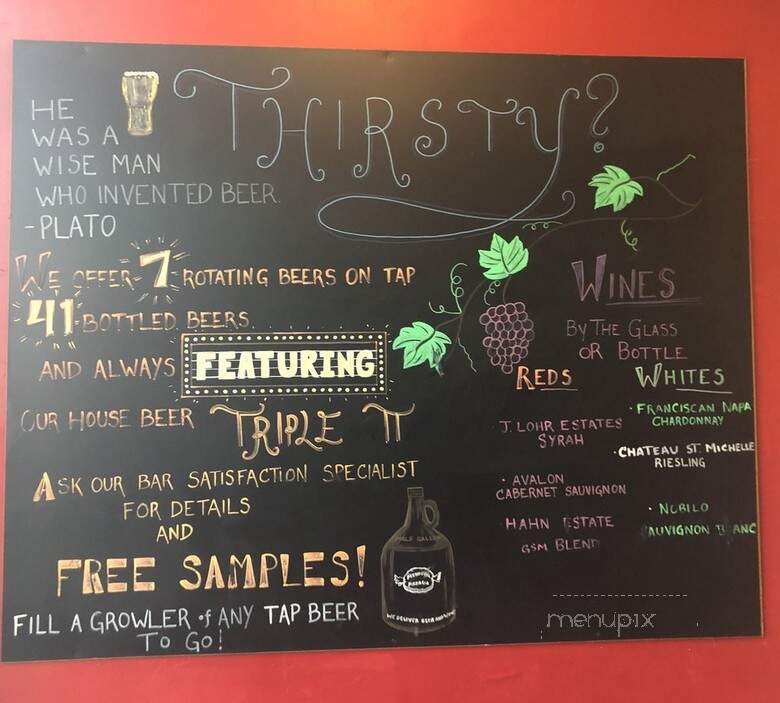 THIRSTY?
HE
WAS A
WISE MAN
WHO INVENTED BEER.
-PLATO
WE OFFER 7 ROTATING BEERS ON TAP
41 BOTTLED BEERS
AND ALWAYS FEATURING
OUR HOUSE BEER TRIPLE π
ASK OUR BAR SATISFACTION SPECIALIST
FOR DETAILS
AND
FREE SAMPLES!
FILL A GROWLER of ANY TAP BEER
TO GO!
HALF GALLON
WINES
BY THE GLASS
OR BOTTLE
REDS
· J. LOHR ESTATES
SYRAH
· AVALON
CABERNET SAUVIGNON
HAHN ESTATE
GSM BLEND
WHITES
· FRANCISCAN NAPA
CHARDONNAY
· CHATEAU ST. MICHELLE
RIESLING
· NOBILO
SAUVIGNON BLANC
menupix